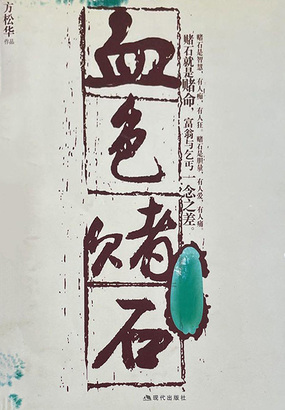 方松华
作品
血色赌石
赌石是智慧，有人痴，有人狂。赌石是胆量，有人爱，有人痛，
赌石就是赌命，富翁与乞丐一念之差。
现代出版社